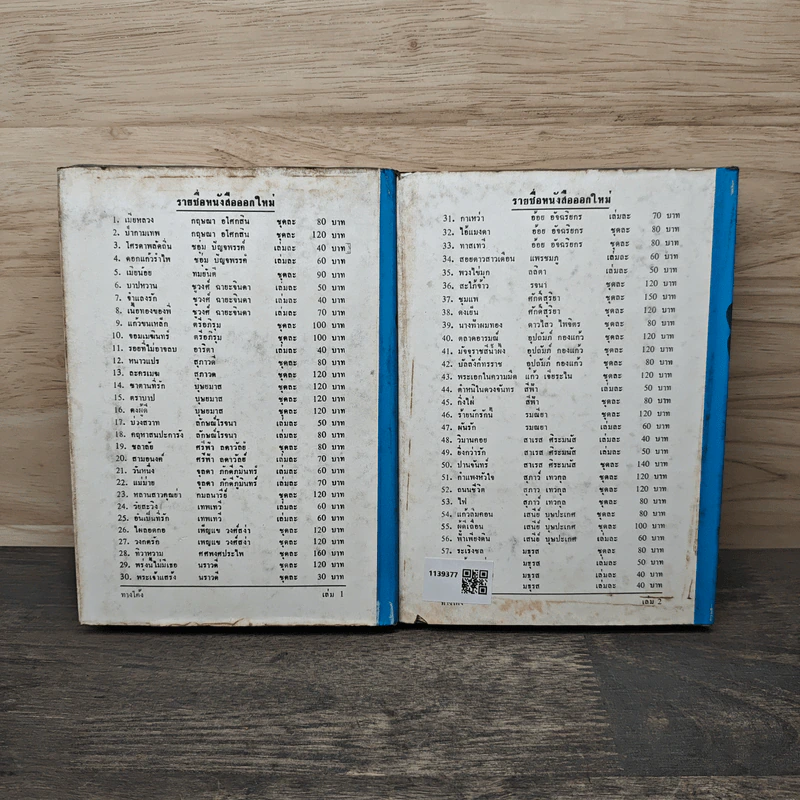 รายชื่อหนังสือออกใหม่
1. เมียหลวง กฤษณา อโศกสิน ชุดละ 80 บาท
2. น้ำกามเทพ กฤษณา อโศกสิน ชุดละ 120 บาท
3. ใครดาพลัดถิ่น ชอุ่ม ปัญจพรรค์ เล่มละ 40 บาท
4. ดอกแก้วรำไพ ชอุ่ม ปัญจพรรค์ เล่มละ 60 บาท
5. เมียน้อย ทมยันตี ชุดละ 90 บาท
6. บาปหวาน ชูวงศ์ ฉายะจินดา เล่มละ 50 บาท
7. จำเลยรัก ชูวงศ์ ฉายะจินดา เล่มละ 40 บาท
8. เนื้อทองของพี่ ชูวงศ์ ฉายะจินดา เล่มละ 70 บาท
9. แก้วขนเหล็ก ตรีอภิรุม ชุดละ 100 บาท
10. จอมเมฆินทร์ ตรีอภิรุม ชุดละ 100 บาท
11. รอยที่ไม่อาจลบ อาริตา เล่มละ 40 บาท
12. หนาวแปร สุภาวดี ชุดละ 80 บาท
13. ละครเมฆ สุภาวดี ชุดละ 120 บาท
14. ซาตานที่รัก บุษยมาส ชุดละ 120 บาท
15. ตราบาป บุษยมาส ชุดละ 120 บาท
16. ดงผู้ดี บุษยมาส ชุดละ 120 บาท
17. บ่วงสวาท ลักษณ์โรจนา เล่มละ 50 บาท
18. คฤหาสน์ปะการัง ลักษณ์โรจนา เล่มละ 80 บาท
19. ชลาลัย ศรีฟ้า ลดาวัลย์ ชุดละ 80 บาท
20. สามอนงค์ ศรีฟ้า ลดาวัลย์ เล่มละ 70 บาท
21. วันหนึ่ง จุลดา ภักดีภูมินทร์ เล่มละ 60 บาท
22. แม่ม่าย จุลดา ภักดีภูมินทร์ เล่มละ 70 บาท
23. หลานสาวคุณย่า กมลนารีย์ ชุดละ 120 บาท
24. วัยละวง เทพเทวี เล่มละ 60 บาท
25. อันเป็นที่รัก เทพเทวี เล่มละ 60 บาท
26. ไผ่ลอดกอ เพ็ญแข วงศ์สง่า ชุดละ 120 บาท
27. วงกตรัก เพ็ญแข วงศ์สง่า ชุดละ 120 บาท
28. ทิวาหวาม ศศพงศ์ประไพ ชุดละ 160 บาท
29. พรุ่งนี้ไม่มีเธอ นราวดี ชุดละ 120 บาท
30. พระเจ้าแสร้ง นราวดี ชุดละ 30 บาท
ทางโค้ง เล่ม 1
รายชื่อหนังสือออกใหม่
31. กาเหว่า อ้อย อัจฉริยกร เล่มละ 70 บาท
32. ไอ้แมงดา อ้อย อัจฉริยกร ชุดละ 80 บาท
33. ทาสเทวี อ้อย อัจฉริยกร ชุดละ 80 บาท
34. สอยดาวสาวเดือน แพรชมภู เล่มละ 60 บาท
35. พวงไข่มุก ลลิตา เล่มละ 50 บาท
36. สะใภ้จ้าว รจนา ชุดละ 120 บาท
37. ชุมแพ ศักดิ์สุริยา ชุดละ 150 บาท
38. ดงเย็น ศักดิ์สุริยา ชุดละ 120 บาท
39. นางฟ้าผมทอง ดาวไสว ไพจิตร ชุดละ 80 บาท
40. ตลาดอารมณ์ อุปถัมภ์ กองแก้ว ชุดละ 120 บาท
41. มัจจุราชสีน้ำผึ้ง อุปถัมภ์ กองแก้ว ชุดละ 120 บาท
42. บัลลังก์ทรราช อุปถัมภ์ กองแก้ว ชุดละ 80 บาท
43. พระเอกในความมืด แก้ว เจียระไน ชุดละ 120 บาท
44. ตำหนิในดวงจันทร์ สีฟ้า เล่มละ 50 บาท
45. กิ่งไผ่ สีฟ้า ชุดละ 80 บาท
46. ร้ายนักรักนี้ รมณียา ชุดละ 120 บาท
47. ฝันรัก รมณียา เล่มละ 60 บาท
48. วิมานคอย สาเรส ศิระมนัส เล่มละ 40 บาท
49. ยิ่งกว่ารัก สาเรส ศิระมนัส เล่มละ 50 บาท
50. ปานจันทร์ สาเรส ศิระมนัส ชุดละ 140 บาท
51. กำแพงหัวใจ สุภาว์ เทวกุล ชุดละ 120 บาท
52. ถนนชีวิต สุภาว์ เทวกุล ชุดละ 120 บาท
53. ไฟ สุภาว์ เทวกุล ชุดละ 80 บาท
54. แก้วลืมคอน เสนีย์ บุษปะเกศ ชุดละ 80 บาท
55. ผู้ดีเถื่อน เสนีย์ บุษปะเกศ ชุดละ 100 บาท
56. ฟ้าเพียงดิน เสนีย์ บุษปะเกศ เล่มละ 60 บาท
57. ระเริงชล มธุรส ชุดละ 80 บาท
มธุรส เล่มละ 50 บาท
มธุรส เล่มละ 40 บาท
มธุรส เล่มละ 40 บาท
1139377
เล่ม 2